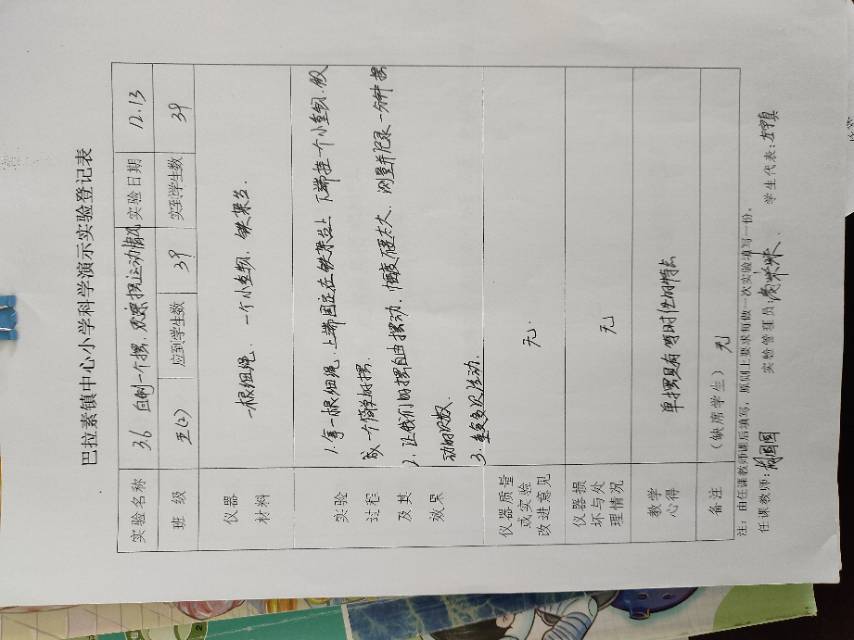 巴拉素镇中心小学科学演示实验登记表
实验名称 3.6 自制一个摆,观察摆运动情况 实验日期 12.13
班 级 五(2) 应到学生数 39 实到学生数 39
仪器
材料
一根细绳、一个小重物、铁架台.
实验
过程
及其
效果
1.拿一根细绳,上端固定在铁架台上,下端挂一个小重物.做
一个简单的摆.
2、让我们的摆自由摆动,幅度不要太大,测量并记录一分钟摆
动的次数.
3.重复多次活动.
仪器质量
或实验
改进意见
无.
仪器损
坏与处
理情况
无
教学
心得
单摆具有等时性的特点
备注 (缺席学生) 无
注:由任课教师课后填写,原则上要求每做一次实验填写一份。
任课教师: 实验管理员: 学生代表: